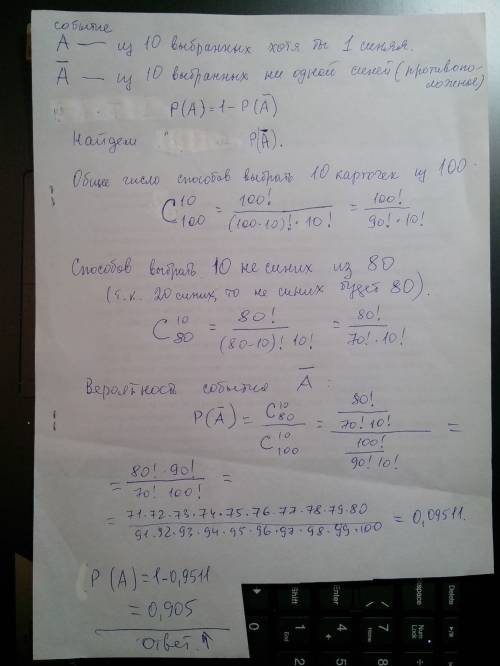 событие
A — из 10 выбранных хотя бы 1 синяя.
Ā — из 10 выбранных ни одной синей (противопо-
ложное)
P(A) = 1 - P(Ā)
Найдем P(Ā).
Общее число способов выбрать 10 карточек из 100.
C₁₀₀¹⁰ = 100! / ((100-10)! · 10!) = 100! / (90! · 10!)
Способов выбрать 10 не синих из 80
(т.к. 20 синих, то не синих будет 80).
C₈₀¹⁰ = 80! / ((80-10)! 10!) = 80! / (70! · 10!)
Вероятность события Ā :
P(Ā) = C₈₀¹⁰ / C₁₀₀¹⁰ = (80! / (70! 10!)) / (100! / (90! 10!)) =
= 80! · 90! / (70! 100!) =
= 71·72·73·74·75·76·77·78·79·80 / (91·92·93·94·95·96·97·98·99·100) = 0,09511.
P(A) = 1 - 0,9511
= 0,905
ответ ↑
Shift
Ctrl
Num Lock
Delete
End
Enter
0
1
2
4
5
7
8